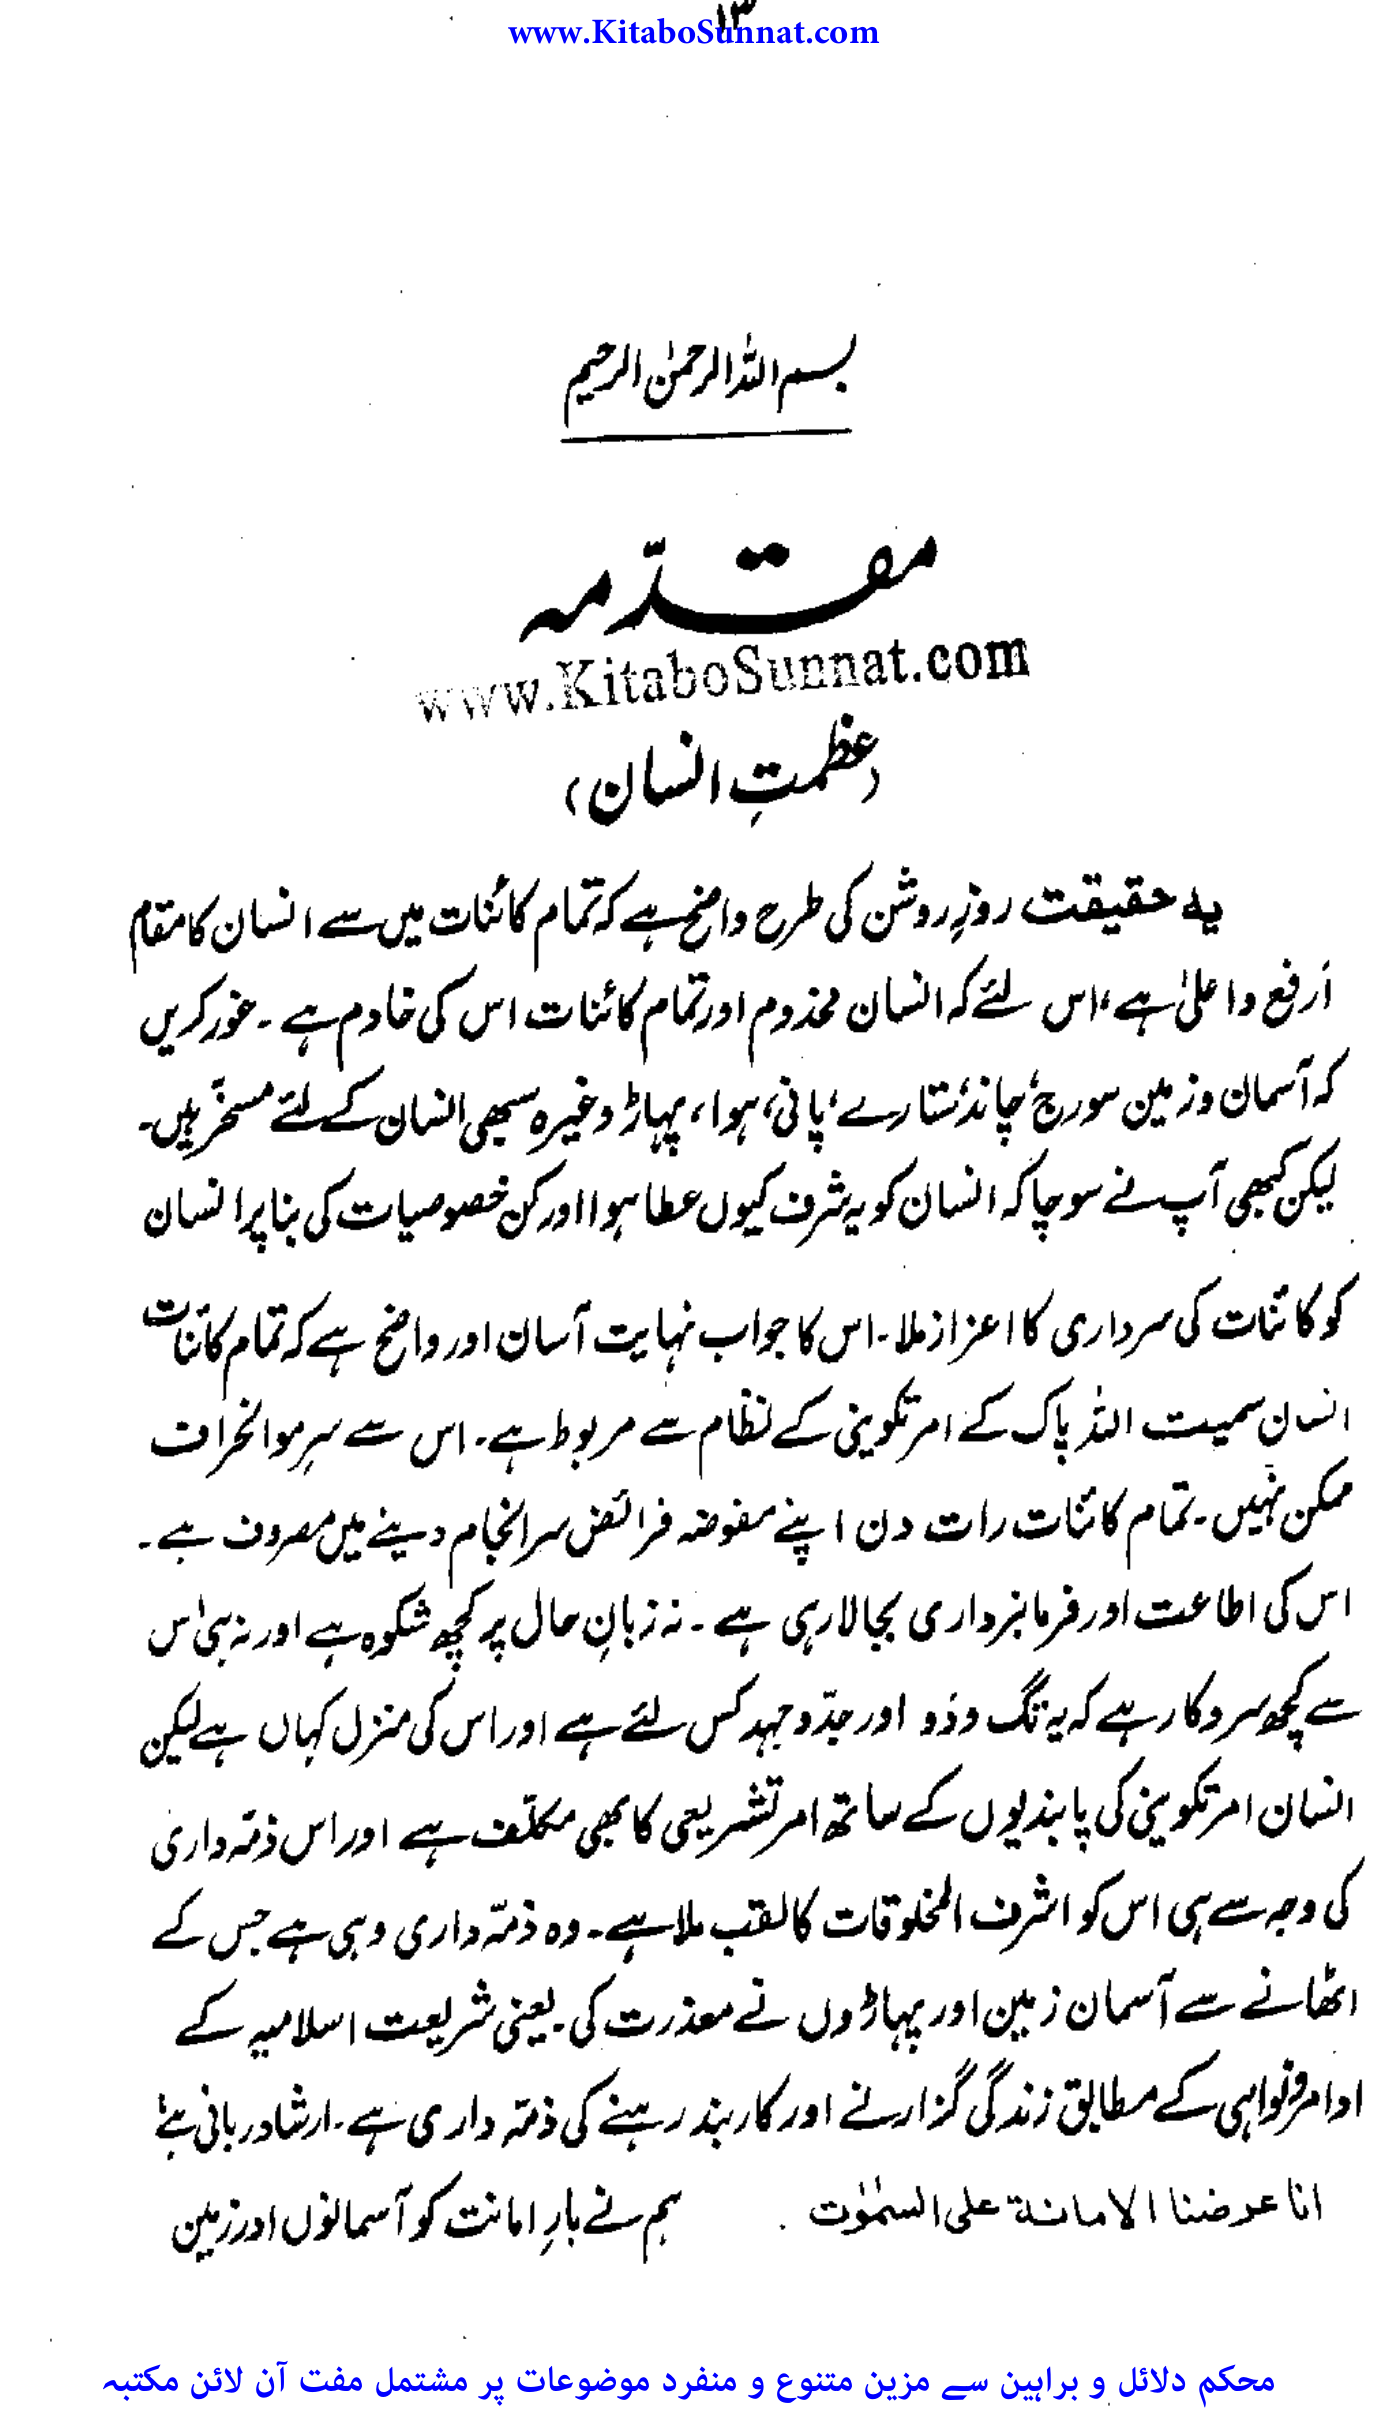 ۱۳
www.KitaboSunnat.com
بسم اللہ الرحمٰن الرحیم
مقدّمہ
www.KitaboSunnat.com
(عظمتِ انسان)
یہ حقیقت روزِ روشن کی طرح واضح ہے کہ تمام کائنات میں سے انسان کا مقام
اَرفع و اعلیٰ ہے، اس لئے کہ انسان مخدوم اور تمام کائنات اس کی خادم ہے۔ غور کریں
کہ آسمان و زمین سورج، چاند، ستارے، پانی، ہوا، پہاڑ وغیرہ سبھی انسان کے لئے مسخّر ہیں۔
لیکن کبھی آپ نے سوچا کہ انسان کو یہ شرف کیوں عطا ہوا اور کن خصوصیات کی بنا پر انسان
کو کائنات کی سرداری کا اعزاز ملا۔ اس کا جواب نہایت آسان اور واضح ہے کہ تمام کائنات
انسان سمیت اللہ پاک کے امر تکوینی کے نظام سے مربوط ہے۔ اس سے سرِ مو انحراف
ممکن نہیں۔ تمام کائنات رات دن اپنے مفوضہ فرائض سرانجام دینے میں مصروف ہے۔
اس کی اطاعت اور فرمانبرداری بجا لا رہی ہے۔ نہ زبانِ حال پر کچھ شکوہ ہے اور نہ ہی اس
سے کچھ سروکار ہے کہ یہ تگ و دَو اور جدّ و جہد کس لئے ہے اور اس کی منزل کہاں ہے لیکن
انسان امر تکوینی کی پابندیوں کے ساتھ امر تشریعی کا بھی مکلّف ہے اور اس ذمّہ داری
کی وجہ سے ہی اس کو اشرف المخلوقات کا لقب ملا ہے۔ وہ ذمّہ داری وہی ہے جس کے
اٹھانے سے آسمان زمین اور پہاڑوں نے معذرت کی۔ یعنی شریعت اسلامیہ کے
اوامر و نواہی کے مطابق زندگی گزارنے اور کاربند رہنے کی ذمّہ داری ہے۔ ارشاد ربانی ہے:
انا عرضنا الامانة على السمٰوٰت ہم نے بارِ امانت کو آسمانوں اور زمین
محکم دلائل و براہین سے مزین متنوع و منفرد موضوعات پر مشتمل مفت آن لائن مکتبہ